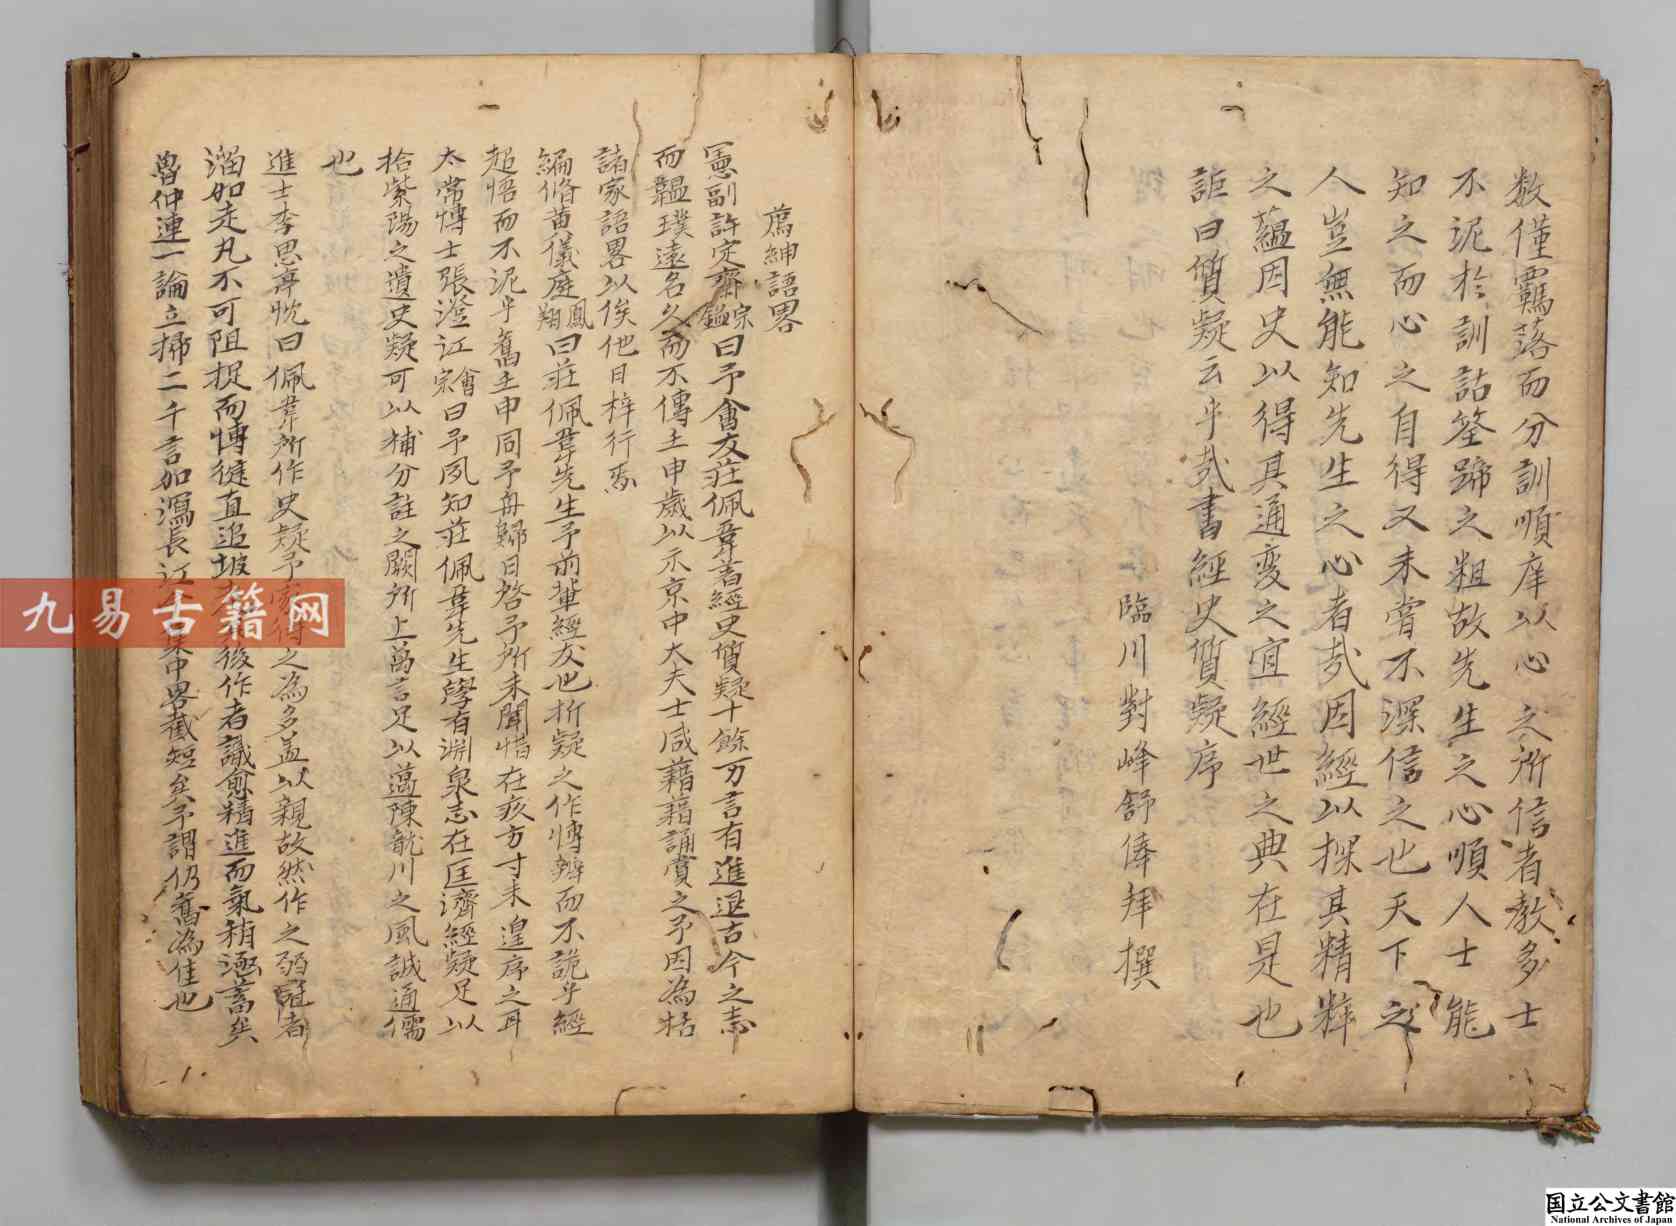 数僅羈落而分訓順庠以心之所信者教多士
不泥於訓詁筌蹄之粗故先生之心順人士能
知之而心之自得又未嘗不深信之也天下之
人豈無能知先生之心者哉因經以探其精粹
之蘊因史以得其通变之宜經世之典在是也
詎曰質疑云乎哉書經史質疑序
臨川對峰舒俸拜撰
薦紳語畧
憲副許定齋宗鎰曰予會友莊佩韋著經史質疑十餘万言有進退古今之志
而韞璞遠名久而不傳壬申歲以示京中大夫士咸藉藉誦賞之予因為括
諸家語畧以俟他日梓行焉
編脩黄儀庭鳳翔曰莊佩韋先生予前輩經友也折疑之作慱辨而不詭乎經
超悟而不泥乎舊壬申同予舟歸日啓予所未聞惜在疚方寸未遑序之耳
太常慱士張澄江宗會曰予夙知莊佩韋先生學有淵泉志在匡濟經疑足以
拾紫陽之遺史疑可以補分註之闕所上萬言足以邁陳龍川之風誠通儒
也
進士李思亭恱曰佩韋所作史疑予之為多盖以親故然作之弱冠者
溜如走丸不可阻捉而慱徤直追坡後作者識愈精進而氣稍遜蓄矣
魯仲連一論立掃二千言如瀉長江集中畧截短矣予謂仍舊為佳也
九易古籍网
国立公文書館
National Archives of Japan